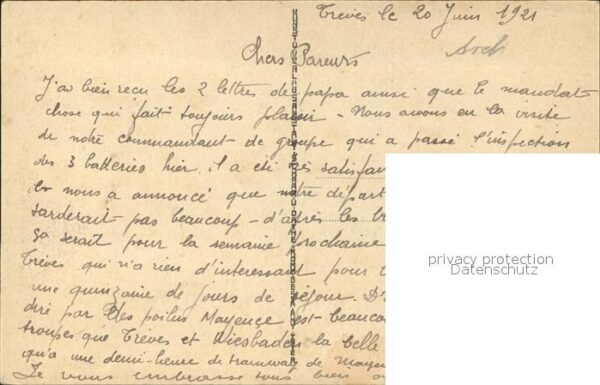 Trèves le 20 Juin 1921
Chers Parents
J'ai bien reçu les 2 lettres de papa ainsi que le mandat
chose qui fait toujours plaisir - Nous avons eu la visite
de notre commandant de groupe qui a passé l'inspection
des 3 batteries hier. il a été très satisfai
il nous a annoncé que notre départ
tarderait pas beaucoup - d'après les
ça serait pour la semaine prochaine
Trèves qui n'a rien d'interessant pour
une quinzaine de jours de séjour. D'
dire par les poilus Mayence est beauco
troupes que Trèves et Wiesbaden la belle
qu'a une demi-heure de tramway de Mayen
Je vous embrasse tous bien
privacy protection
Datenschutz